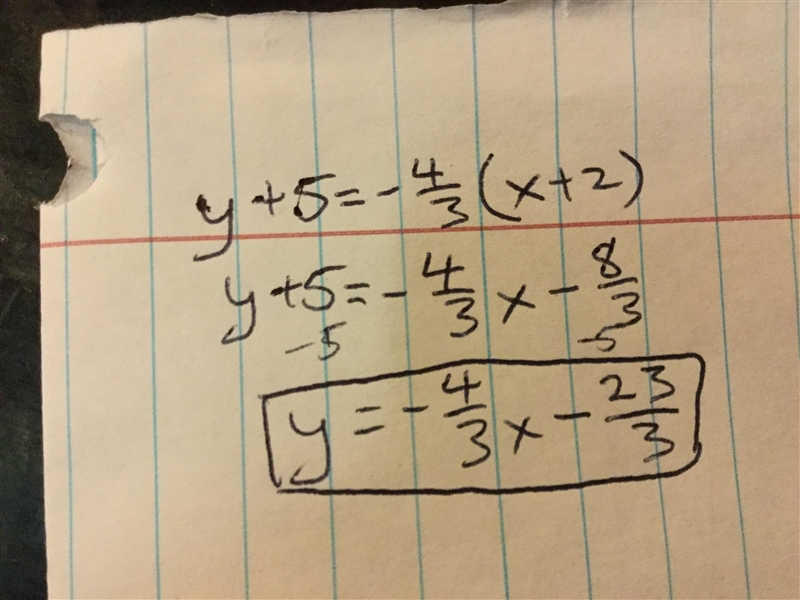 y+5=-4/3(x+2)
y+5=-4/3x-8/3
-5 -5
y=-4/3x-23/3